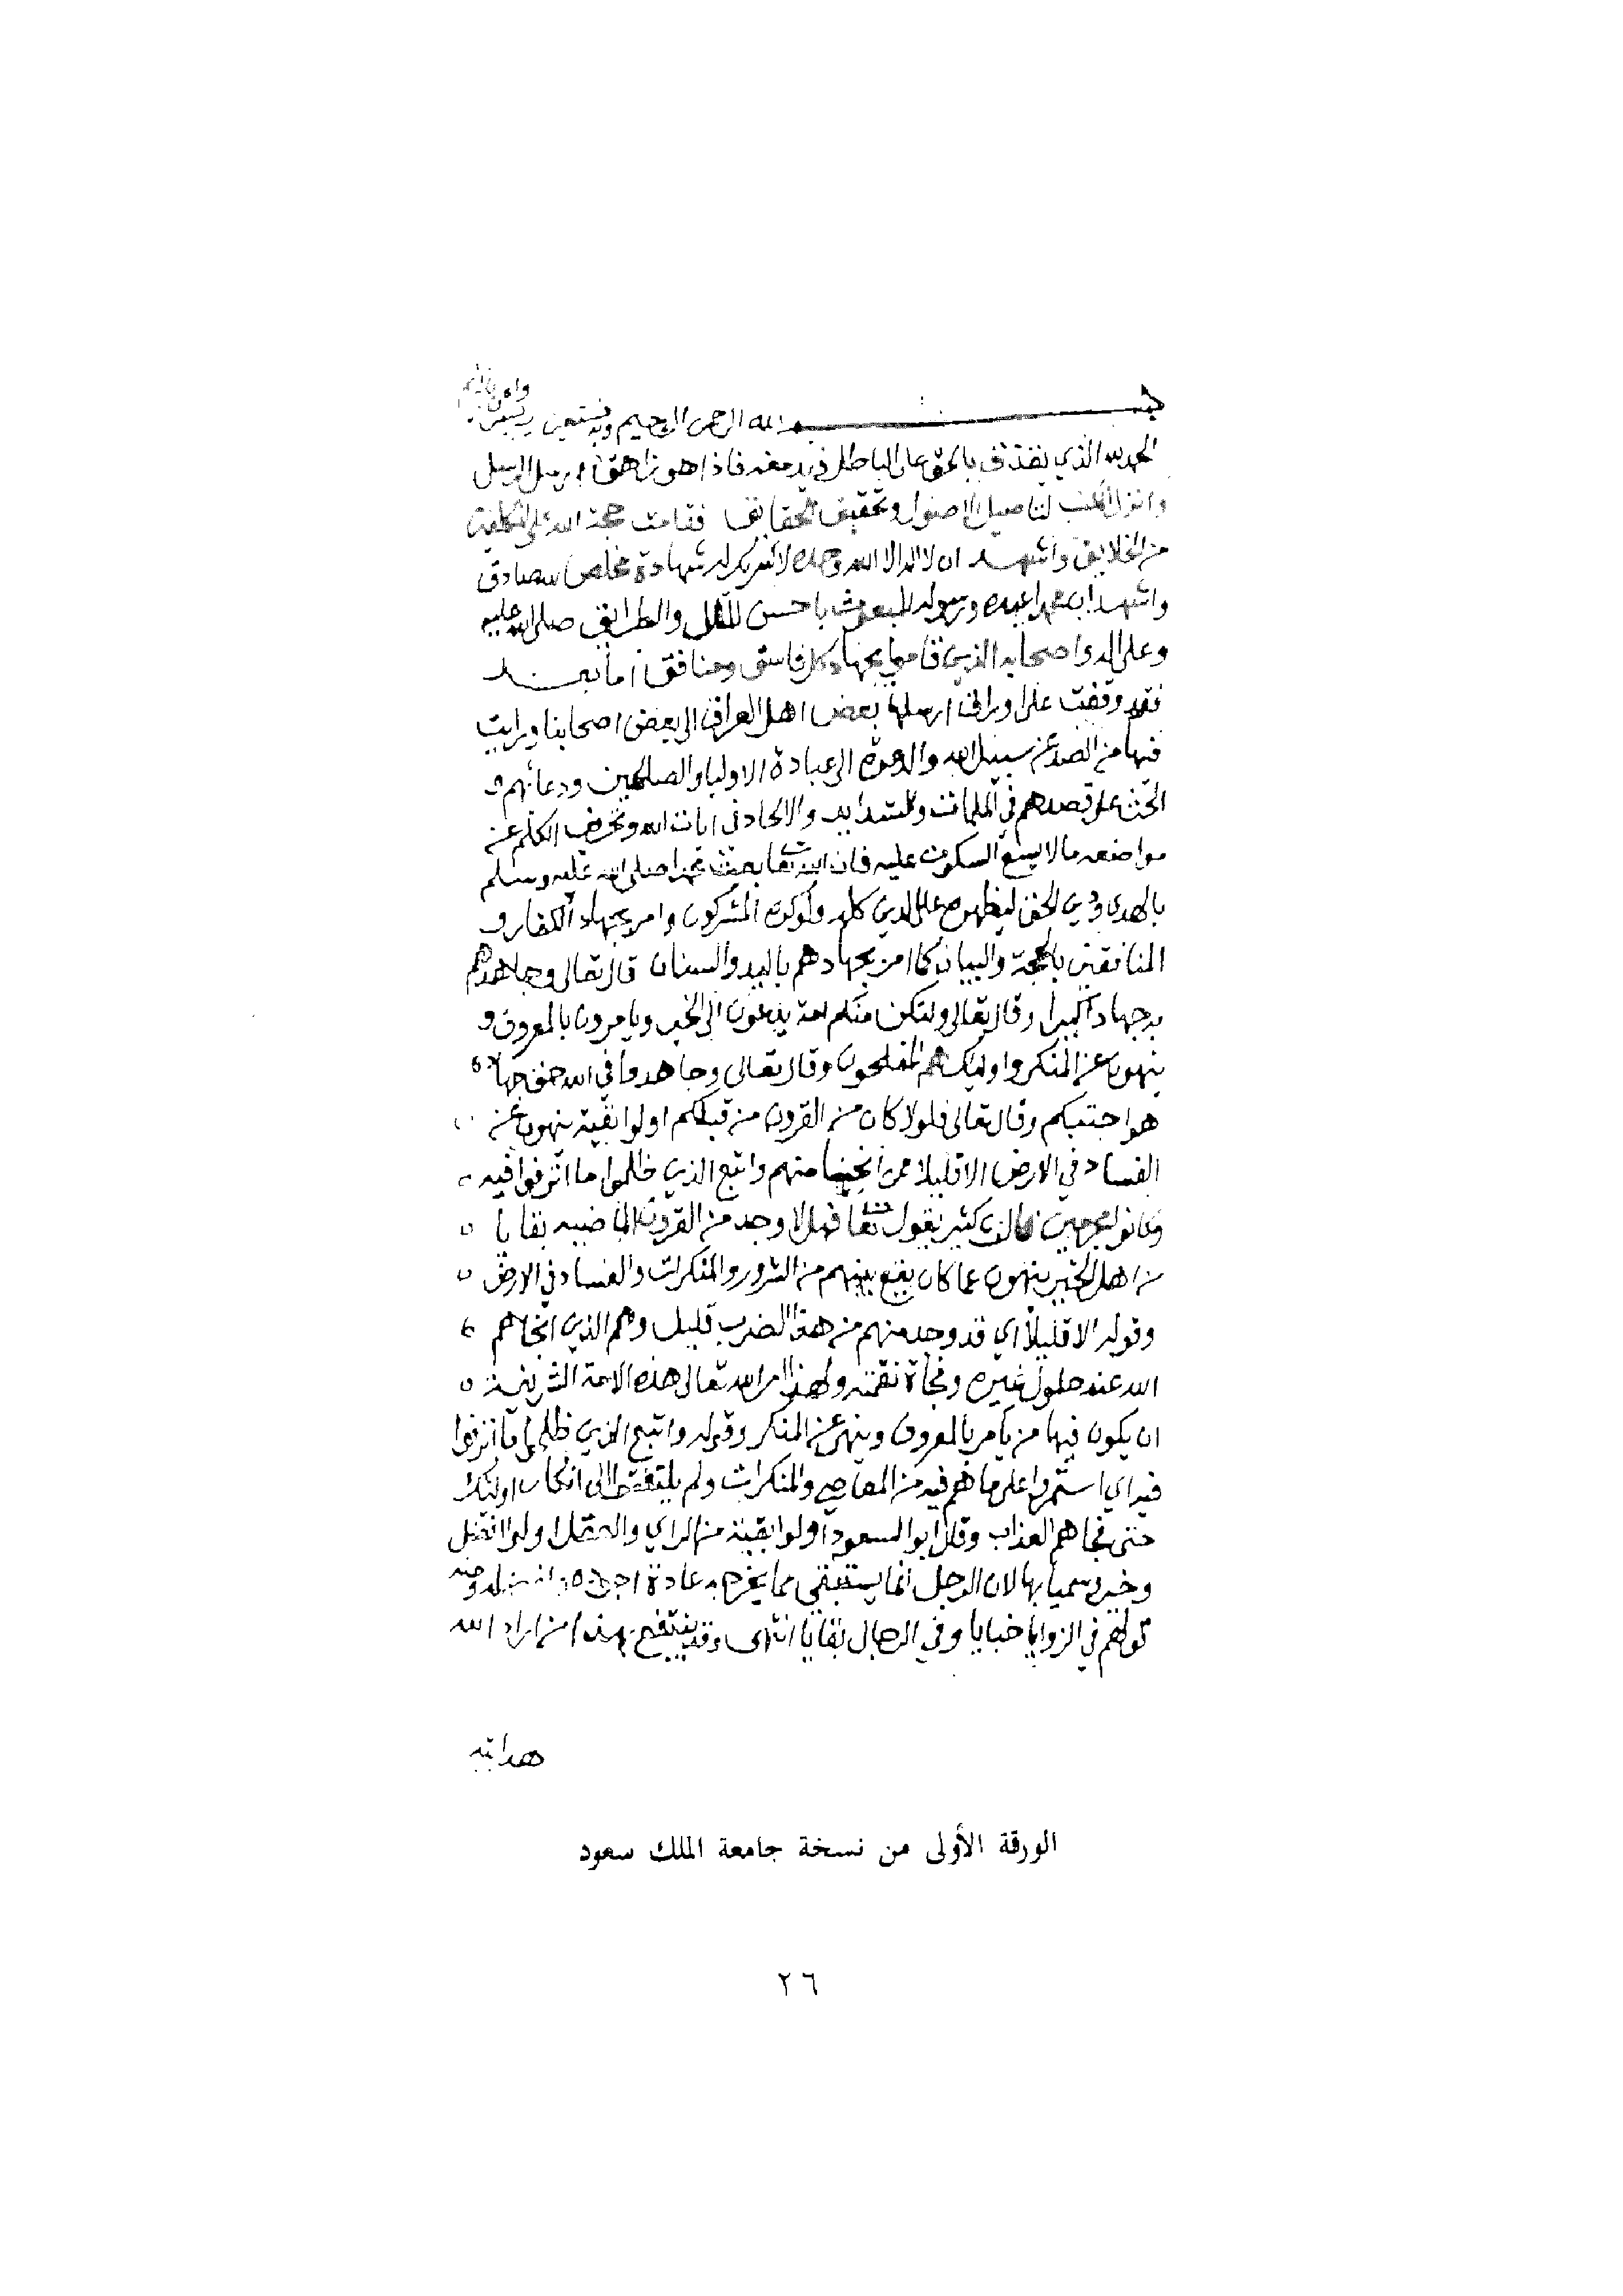 بسم الله الرحمن الرحيم وبه نستعين
الحمد لله الذي يقذف بالحق على الباطل فيدمغه فاذا هو زاهق ارسل الرسل
وانزل الكتب لتاصيل الاصول وتحقيق الحقايق فقامت حجة الله على المكلفين
من الخلايق واشهد ان لا اله الا الله وحده لا شريك له شهادة مخلص صادق
واشهد ان محمدا عبده ورسوله المبعوث باحسن الملل والطرايق صلى الله عليه
وعلى اله واصحابه الذين قاموا بجهاد كل فاسق ومنافق اما بعد
فقد وقفت على اوراق ارسلها بعض اهل العراق الى بعض اصحابنا ورايت
فيها من الصد عن سبيل الله والدعوة الى عبادة الاوليا والصالحين ودعائهم و
الحث على قصدهم في الملمات والشدايد والالحاد في ايات الله وتحريف الكلم عن
مواضعه ما لا يسع السكوت عليه فان الله تعا بعث محمدا صلى الله عليه وسلم
بالهدى ودين الحق ليظهره على الدين كله ولو كره المشركون وامر بجهاد الكفار و
المنافقين بالحجة والبيان كما امر بجهادهم باليد والسنان قال تعالى وجاهدهم
به جهادا كبيرا وقال تعالى ولتكن منكم امة يدعون الى الخير ويامرون بالمعروف و
ينهون عن المنكر واوليك هم المفلحون وقال تعالى وجاهدوا في الله حق جهاده
هو اجتبيكم وقال تعالى فلولا كان من القرون من قبلكم اولوا بقية ينهون عن
الفساد في الارض الا قليلا ممن انجينا منهم واتبع الذين ظلموا ما اترفوا فيه
وكانوا مجرمين قال ابن كثير يقول تعا فهلا وجد من القرون الماضيه بقايا
من اهل الخير ينهون عما كان يقع بينهم من الشرور والمنكرات والفساد في الارض
وقوله الا قليلا اي قد وجد منهم من هذا الضرب قليل وهم الذين انجاهم
الله عند حلول غيره وفجأة نقمته ولهذا امر الله تعالى هذه الامة الشريفة
ان يكون فيها من يأمر بالمعروف وينهى عن المنكر وقوله واتبع الذين ظلموا ما اترفوا
فيه اي استمروا على ما هم فيه من المعاصي والمنكرات ولم يلتفتوا الى انكار اولئك
حتى فجاهم العذاب وقال ابو السعود اولوا بقية من الراي والعقل اولوا فضل
وخير وسميا بها لان الرجل انما يستبقي مما يخرجه عادة اجوده وافضله ومنه
قولهم في الزوايا خبايا وفي الرجال بقايا انتهى وقد ينتفع بهذا من اراد الله
هدايته
الورقة الأولى من نسخة جامعة الملك سعود
٢٦